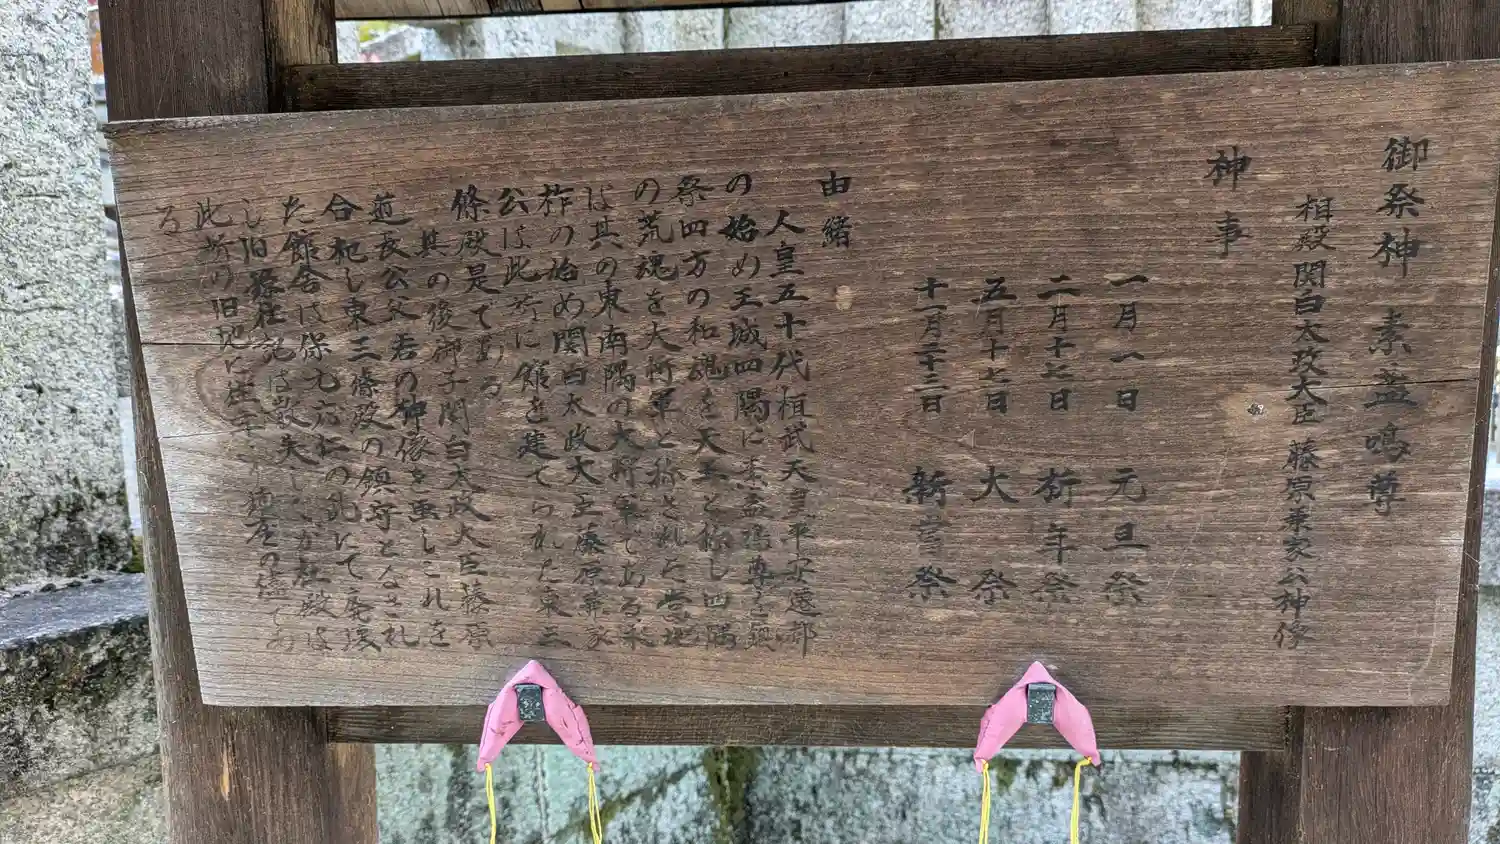 御祭神 素盞嗚尊
相殿 関白太政大臣 藤原兼家公神像
神事
一月一日 元旦祭
二月十七日 祈年祭
五月十七日 大祭
十一月二十三日 新嘗祭
由緒
人皇五十代桓武天皇平安遷都
の始め王城四隅に素盞嗚尊を鎮
祭四方の和魂を天王と称し四隅
の荒魂を大将軍と称された当地
は其の東南隅の大将軍である来
柞の始め関白太政大臣藤原兼家
公は此所に館を建てられた東三
條殿是である
其の後御子関白太政大臣藤原
道長公父君の神像を画しこれを
合祀し東三條殿の鎮守となされ
た館舎は保元応仁の乱にて廃壊
し旧器社記は散失したが社殿は
此所の旧地に在 鎮座の儘であ
る